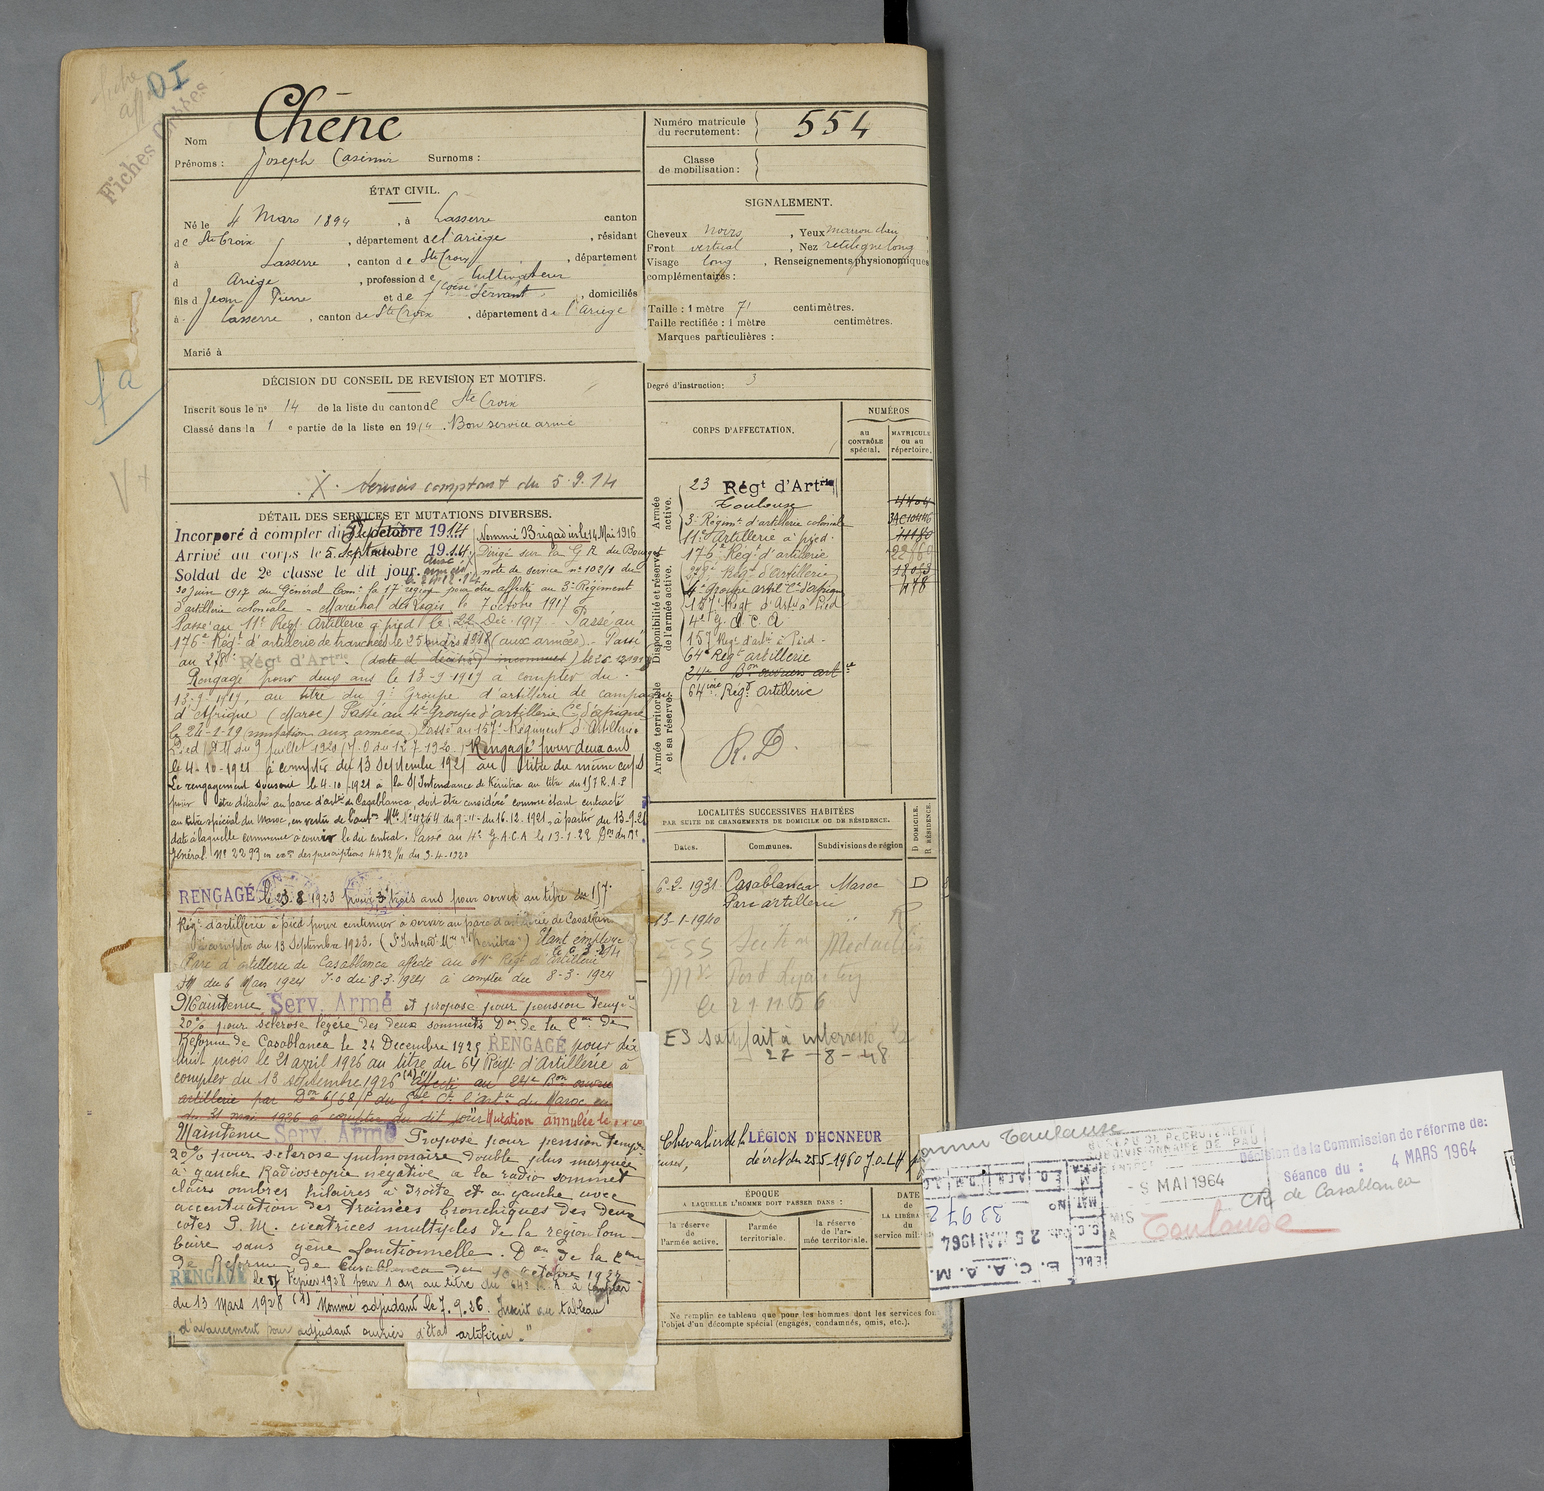 DI
Fiches
Nom Chêne
Prénoms : Joseph Casimir Surnoms :
Numéro matricule du recrutement : 554
Classe de mobilisation :
ÉTAT CIVIL.
Né le 4 Mars 1894, à Lasserre canton
de Ste Croix, département de l'ariège, résidant
à Lasserre, canton de Ste Croix, département
d Ariège, profession de Cultivateur
fils d Jean Pierre et de Servant, domiciliés
à Lasserre, canton de Ste Croix, département de l'ariège
Marié à
SIGNALEMENT.
Cheveux noirs, Yeux marron
Front vertical, Nez rectiligne long
Visage long, Renseignements physionomiques
complémentaires :
Taille : 1 mètre 71 centimètres.
Taille rectifiée : 1 mètre centimètres.
Marques particulières :
Degré d'instruction : 3
DÉCISION DU CONSEIL DE REVISION ET MOTIFS.
Inscrit sous le no 14 de la liste du canton de Ste Croix
Classé dans la 1 e partie de la liste en 1914. Bon service armé
X. Services comptant du 5.9.14
DÉTAIL DES SERVICES ET MUTATIONS DIVERSES.
Incorporé à compter du 5 1914 Nommé Brigadier le 14 Mai 1916
Arrivé au corps le 5 septembre 1914. Dirigé sur la G.R. du Bourget
Soldat de 2e classe le dit jour. note de service no 102/8 du
30 Juin 1917 du Général Comt la 17e région pour être affecté au 3e Régiment
d'artillerie coloniale - Maréchal des Logis le 7 octobre 1917
Passé au 11e Régt Artillerie à pied le 22 Déc. 1917 - Passé au
176e Régt d'artillerie de tranchées le 25 mars 1918 (aux armées). - Passé
au 278e Régt d'Artrie (date de décision inconnue) le
Rengagé pour deux ans le 13-9-1919 à compter du
13-9-1919, au titre du 9e Groupe d'artillerie de campagne
d'Afrique (Maroc) Passé au 4e Groupe d'artillerie Cne d'afrique
le (mutation aux armées) Passé au 157e Régiment d'Artillerie à
Pied (D.M du 9 juillet 1920 J.O du 12 7-1920. Rengagé pour deux ans
le 4-10-1921 à compter du 13 Septembre 1921 au titre du même corps
Le rengagement souscrit le 4.10.1921 à la S/Intendance de Kénitra au titre du 157 R.A.P
pour être détaché au parc d'artie de Casablanca, doit être considéré comme étant contracté
au titre spécial du Maroc, en vertu de l'autn Mlle No 4264 du 16.12.1921, à partir du 13-9-21
date à laquelle commence à courir le dit contrat. Passé au 4e G.A.C.A le 13-1-22
Général No 2293 en exon des prescriptions 4492 /11 du 9-4-1920
RENGAGÉ le 23.8.1923 pour 3 trois ans pour servir au titre du 157e
Régt d'artillerie à pied pour continuer à servir au parc d'artillerie de Casablanca
à compter du 13 Septembre 1923. Étant employé
Parc d'artillerie de Casablanca affecté au 64e Régt d'Artillerie
DM du 6 Mars 1924 J.O du 8.3.1924 à compter du 8-3-1924
Maintenu Serv. Armé et proposé pour pension tempre
20% pour sclérose légère des deux sommets Don de la Con de
Réforme de Casablanca le 24 Decembre 1925 RENGAGÉ pour dix
huit mois le 21 avril 1926 au titre du 64 Régt d'Artillerie à
compter du 13 septembre 1926 (1) affecté au 24e Bon ouvriers
artillerie par Don 6568/P du Gal Ct l'Artie du Maroc en
du 31 mai 1926 à compter du dit jour Mutation annulée le
Maintenu Serv. Armé Proposé pour pension tempre
20% pour sclérose pulmonaire double plus marquée
à gauche Radioscopie négative a la radio sommet
clairs ombres hilaires à droite et à gauche avec
accentuation des trainées bronchiques des deux
cotés P.M. cicatrices multiples de la région lom-
baire sans gêne fonctionnelle. Don de la Con
de Réforme de Casablanca du 10 octobre 1927
RENGAGÉ le 7 Février 1928 pour 1 an au titre du 64e R.A. à compter
du 13 Mars 1928 (1) Nommé adjudant le 7.9.26. Inscrit au tableau
d'avancement pour adjudant ouvrier d'État artificier."
CORPS D'AFFECTATION.
NUMÉROS
au CONTRÔLE spécial.
MATRICULE ou au répertoire.
Armée active.
Disponibilité et réserve de l'armée active.
Armée territoriale et sa réserve.
23 Régt d'Artrie
Toulouse
3e Régimt d'artillerie coloniale
11e Artillerie à pied
176e Régt d'artillerie
278e Régt d'Artillerie
4e groupe artil Cne d'afrique
157e Régt d'Artie à Pied
4e G. A. C. A
157e Régt d'artie à Pied.
64e Régt artillerie
24e Bon ouvriers art
64ème Régt Artillerie
R.D.
LOCALITÉS SUCCESSIVES HABITÉES
PAR SUITE DE CHANGEMENTS DE DOMICILE OU DE RÉSIDENCE.
Dates. Communes. Subdivisions de région D DOMICILE. R RÉSIDENCE.
6-2-1931 Casablanca Maroc D
Parc artillerie
13-1-1940 " R
Port Lyautey
le 21.11.56
ES satisfait à
27-8-48
Chevalier de la LÉGION D'HONNEUR
décret du 25.5.1960 J.O.
ÉPOQUE
A LAQUELLE L'HOMME DOIT PASSER DANS :
la réserve de l'armée active.
l'armée territoriale.
la réserve de l'armée territoriale.
DATE de LA LIBÉRA du service mili
Ne remplir ce tableau que pour les hommes dont les services font
l'objet d'un décompte spécial (engagés, condamnés, omis, etc.).
Toulouse
BUREAU DE RECRUTEMENT
SUBDIVISIONNAIRE DE PAU
- 8 MAI 1964
Décision de la Commission de réforme de:
Séance du : 4 MARS 1964
CR de Casablanca
Toulouse
25 MAI 1964
E.C.A.A.M.